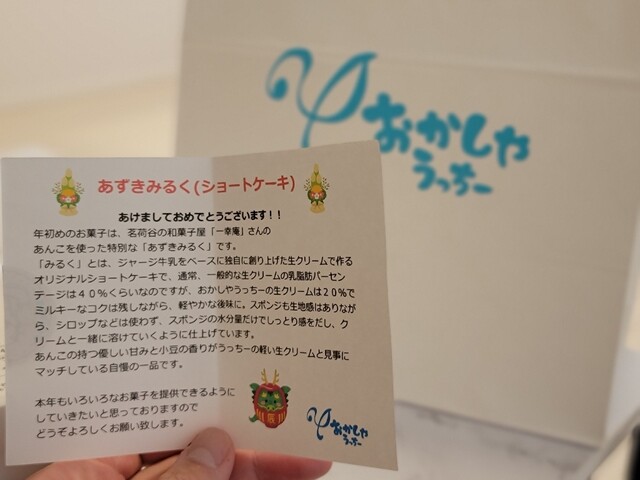 おかしや
うっちー
あずきみるく(ショートケーキ)
あけましておめでとうございます!!
年初めのお菓子は、茗荷谷の和菓子屋「一幸庵」さんの
あんこを使った特別な「あずきみるく」です。
「みるく」とは、ジャージ牛乳をベースに独自に創り上げた生クリームで作る
オリジナルショートケーキで、通常、一般的な生クリームの乳脂肪パーセン
テージは40%くらいなのですが、おかしやうっちーの生クリームは20%で
ミルキーなコクは残しながら、軽やかな後味に。スポンジも生地感はありなが
ら、シロップなどは使わず、スポンジの水分量だけでしっとり感をだし、ク
リームと一緒に溶けていくように仕上げています。
あんこの持つ優しい甘みと小豆の香りがうっちーの軽い生クリームと見事に
マッチしている自慢の一品です。
本年もいろいろなお菓子を提供できるように
していきたいと思っておりますので
どうぞよろしくお願い致します。
おかしや
うっちー